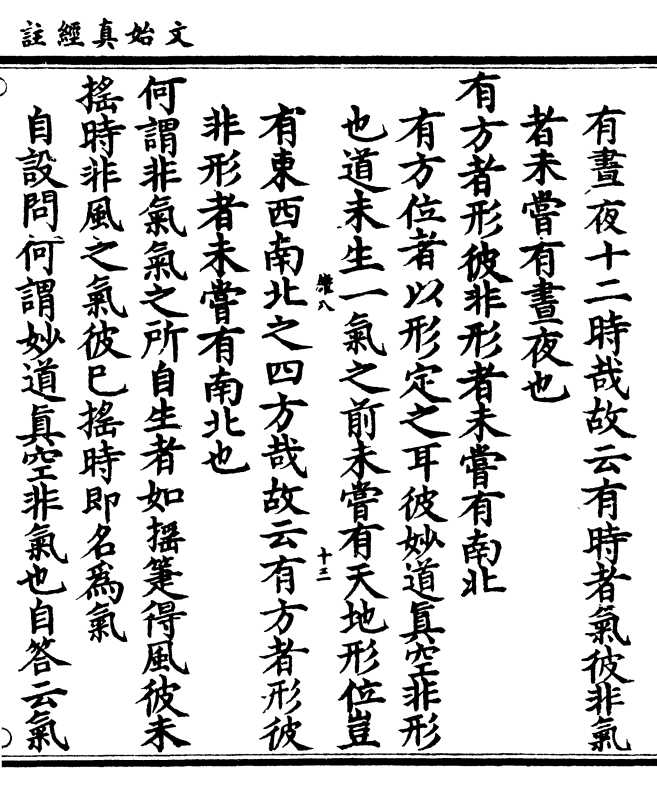 文始真經註
有晝夜十二時哉故云有時者氣彼非氣
者未嘗有晝夜也
有方者形彼非形者未嘗有南北
有方位者以形定之耳彼妙道真空非形
也道未生一氣之前未嘗有天地形位豈
十三
有東西南北之四方哉故云有方者形彼
非形者未嘗有南北也
何謂非氣氣之所自生者如搖箑得風彼未
搖時非風之氣彼已搖時即名為氣
自設問何謂妙道真空非氣也自答云氣